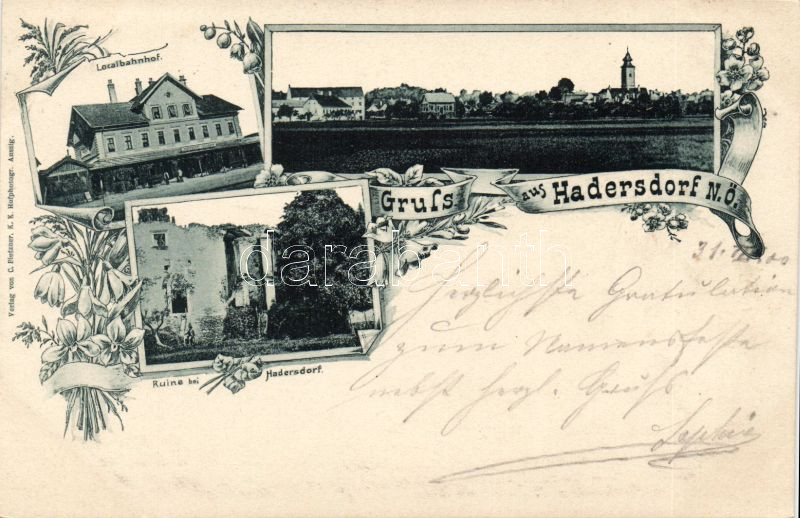 Localbahnhof.
Gruſs
aus Hadersdorf N.Ö.
Verlag von C. Pietzner, K. K. Hofphotogr. Aussig.
darabanth
Ruine bei Hadersdorf.
Herzlichste Gratulation
zum Namensfeste
nebst herzl. Gruß
Sophie